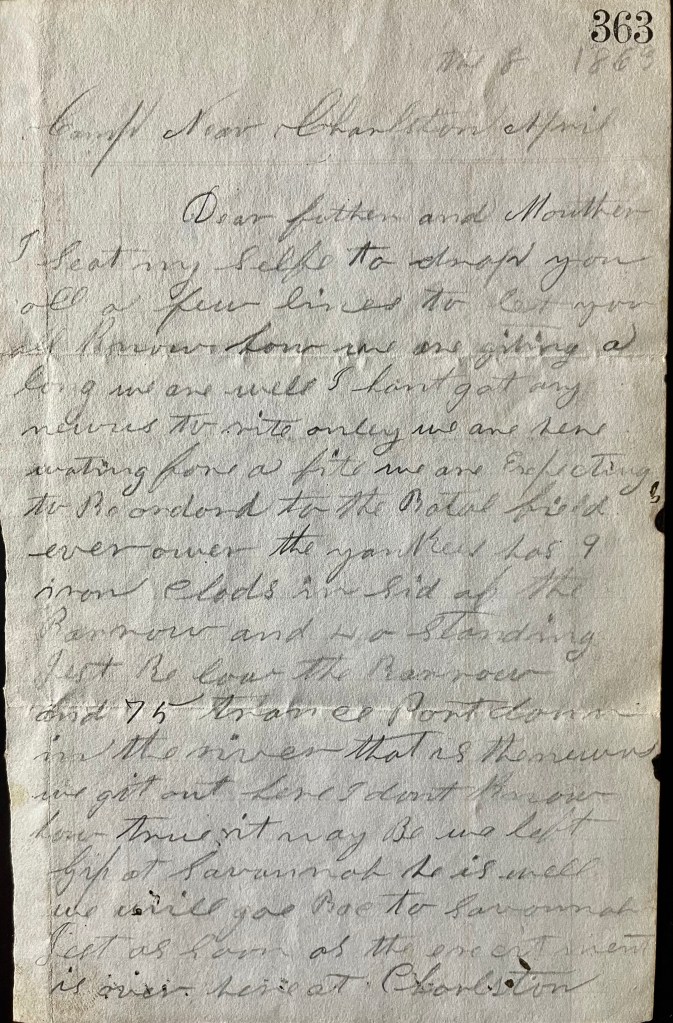 363
the 8 1863
Camp Near Charlston April
Dear father and Mouther
I Seat my Selfe to drap you
all a few lines to let you
all Know how we are giting a
long we are well I hant got any
newus to rite onley we are here
wating fore a fite we are Expecting
to Be ordord to the Batal field
ever ower the yankees has 9
iron Clads in Sid of the
Barrow and 20 Standing
Jest Be low the Barrow
and 75 trance Port down
in the river that is the newus
we git out here I dont Know
how true it may Be we left
Gip at Savannah he is well
we will goe Bac to Savannah
Jest as Soon as the
is over here at Charlston